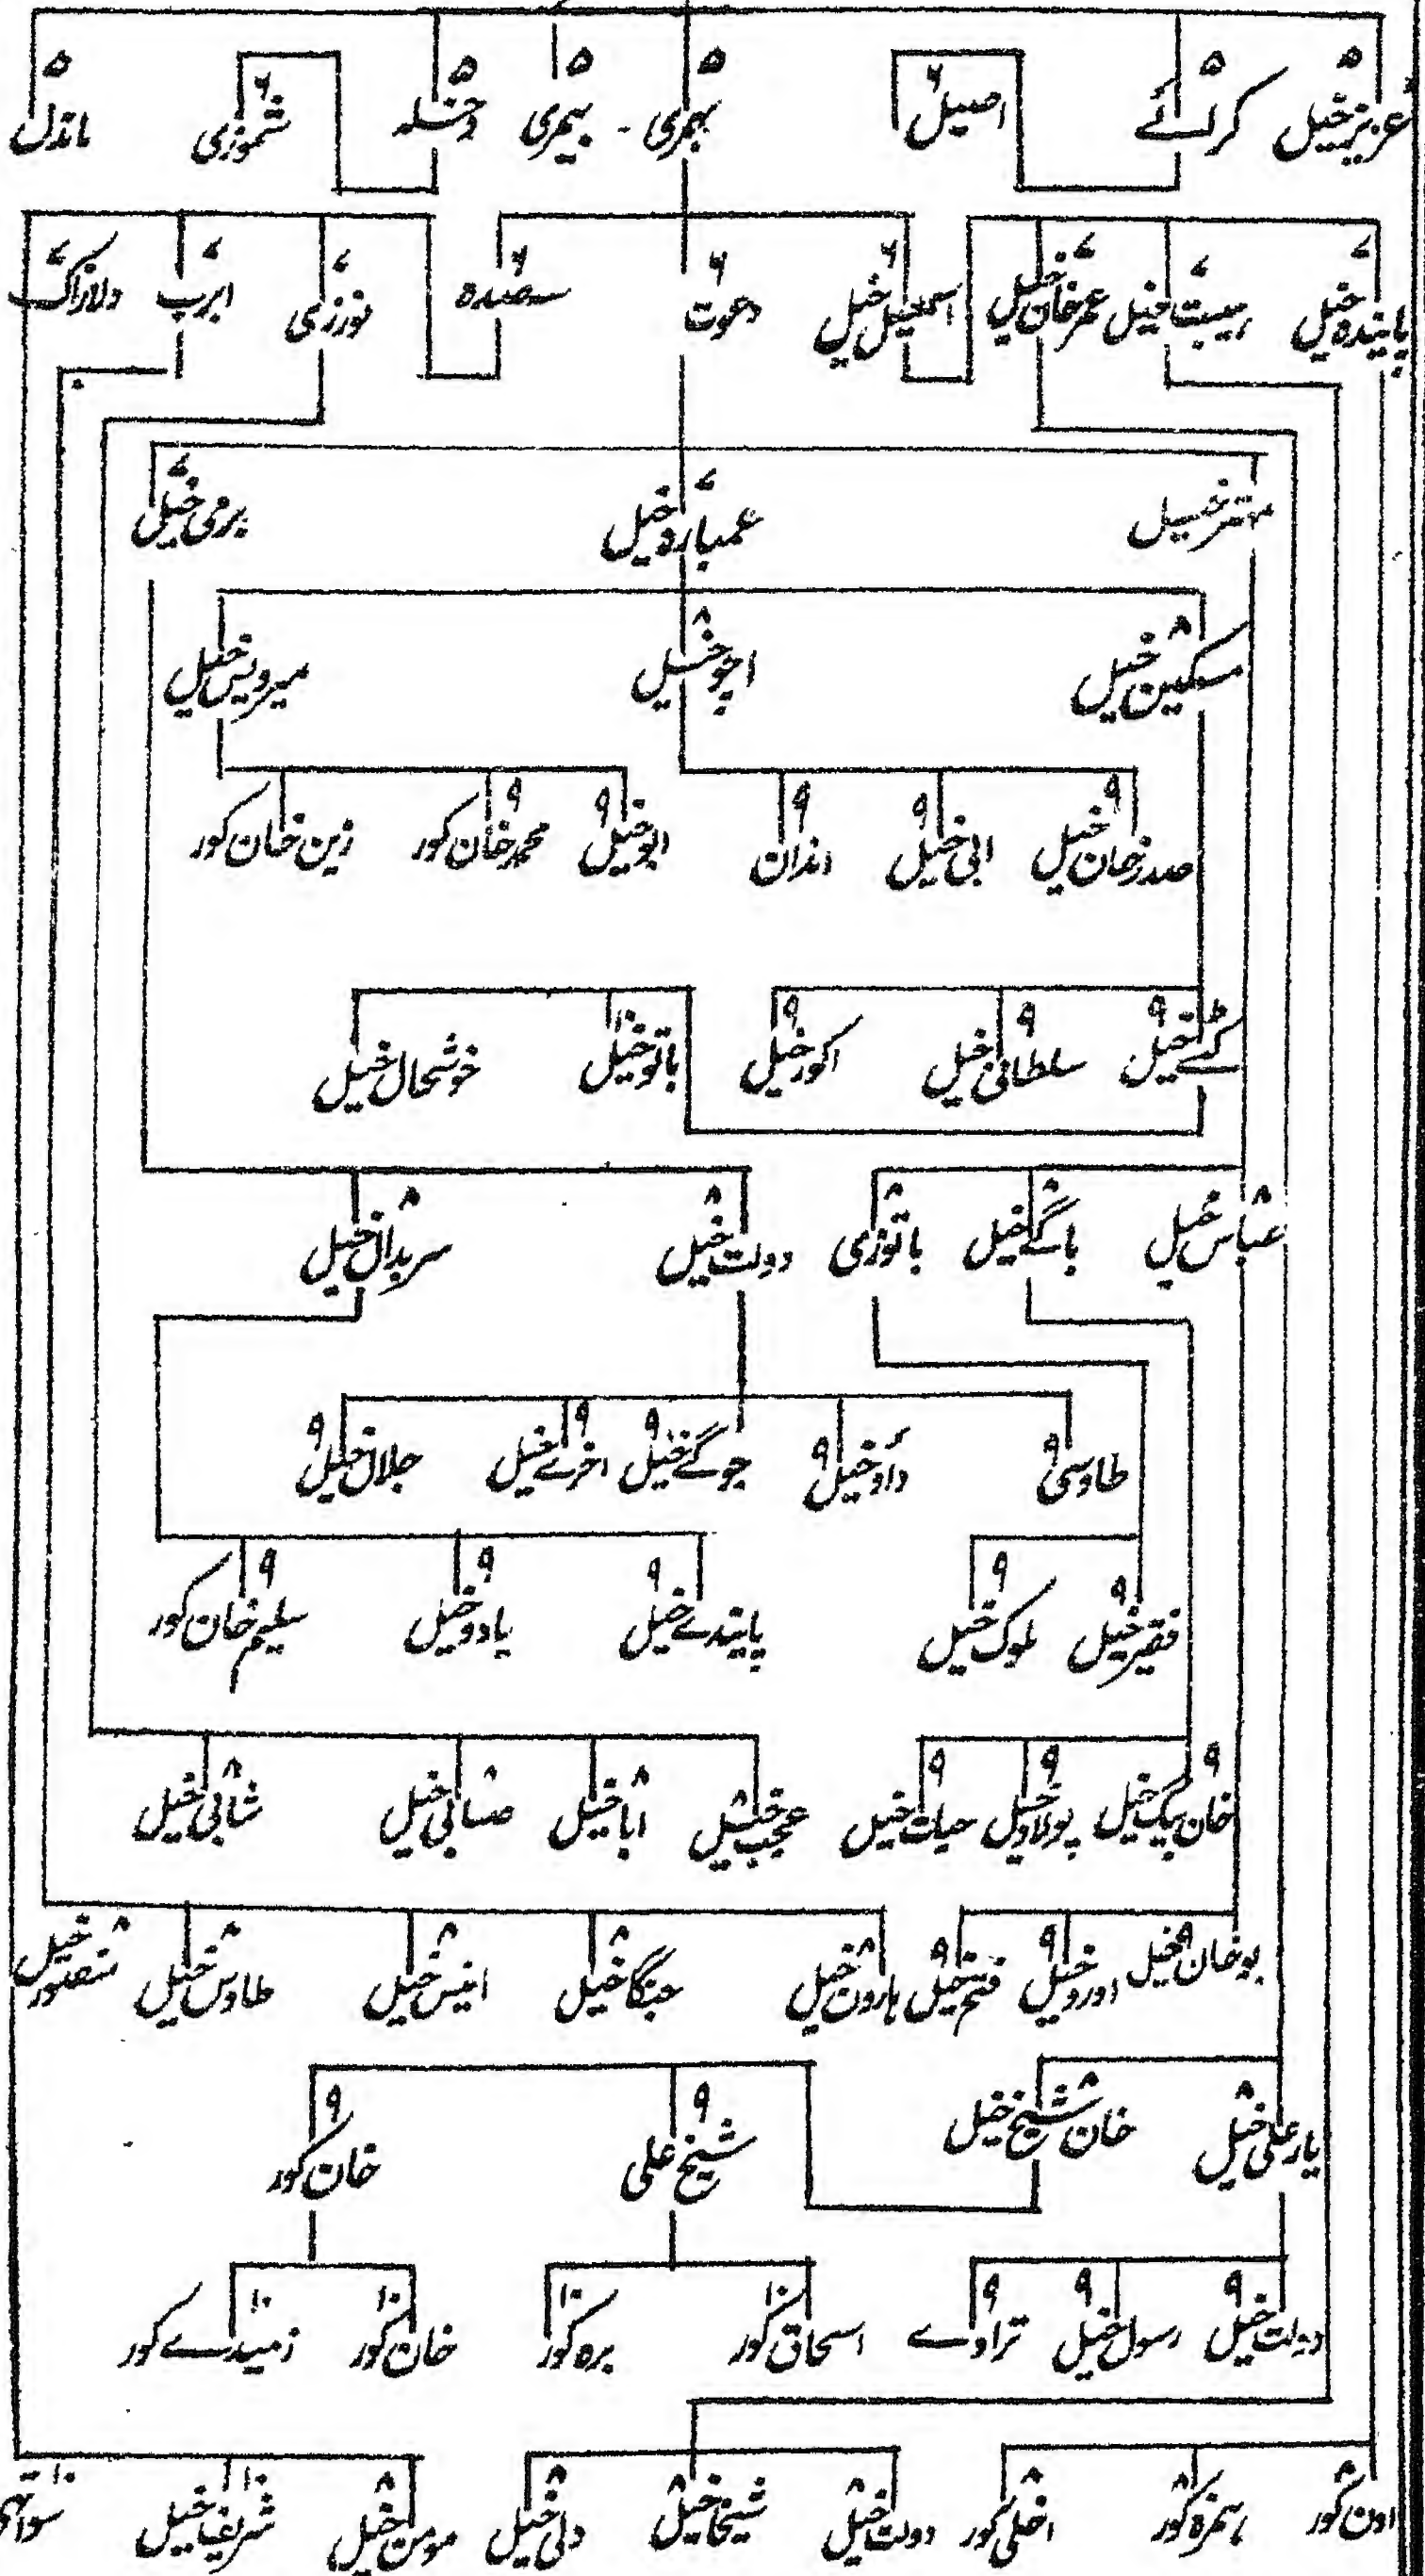 ۵ عزیز خیل ۵ کرلسئے ۶ اصیل ۵ بھمری - ۵ بیمری ۵ وخسلہ ۶ شموزی ۵ ماندل
۷ پایندہ خیل ۷ ہیبت خیل ۷ عمر خان خیل ۶ اسمعیل خیل ۶ دعوت ۶ سعیدہ ۷ نورزی ۷ ابرپ ۷ دلازاک
مہتر خیل ۷ عمبارہ خیل ۷ برمی خیل
۸ مسکین خیل ۸ اچو خیل میرویس خیل
۹ صدر خان خیل ۹ ابی خیل ۹ اندان ۹ ابو خیل ۹ محمد خان کور زین خان کور
۹ خیل ۹ سلطانی خیل ۹ اکور خیل ۱۰ باتو خیل خوشحال خیل
۸ عباس خیل ۸ باگے خیل ۸ باتوزی ۸ دولت خیل ۸ سربدال خیل
۹ طاوسی ۹ داؤد خیل ۹ جوگے خیل ۹ اخرے خیل ۹ جلال خیل
۹ فقیر خیل ۹ ملوک خیل ۹ پایندے خیل ۹ یادو خیل ۹ سلیم خان کور
۹ خان بیگ خیل ۹ پولاد خیل ۹ حیات خیل ۸ عجب خیل ۸ ابا خیل ۸ صنابی خیل ۸ شابی خیل
۹ بوخان خیل ۹ اورو خیل ۹ فتح خیل ۸ ہارون خیل ۸ جنگا خیل ۸ انیس خیل ۸ طاوس خیل ۸ منصور خیل
۸ یار علی خیل ۸ خان شیخ خیل ۹ شیخ علی ۹ خان کور
۹ دولت خیل ۹ رسول خیل ۹ تراوے ۱۰ اسحاق کور ۱۰ برہ کور ۱۰ خان کور ۱۰ زمیندے کور
۸ اودن کور ۸ ہمزہ کور ۸ اخلی کور ۸ دولت خیل ۸ شیخا خیل ۸ دلی خیل ۸ مومن خیل ۱۰ شریف خیل ۱۰